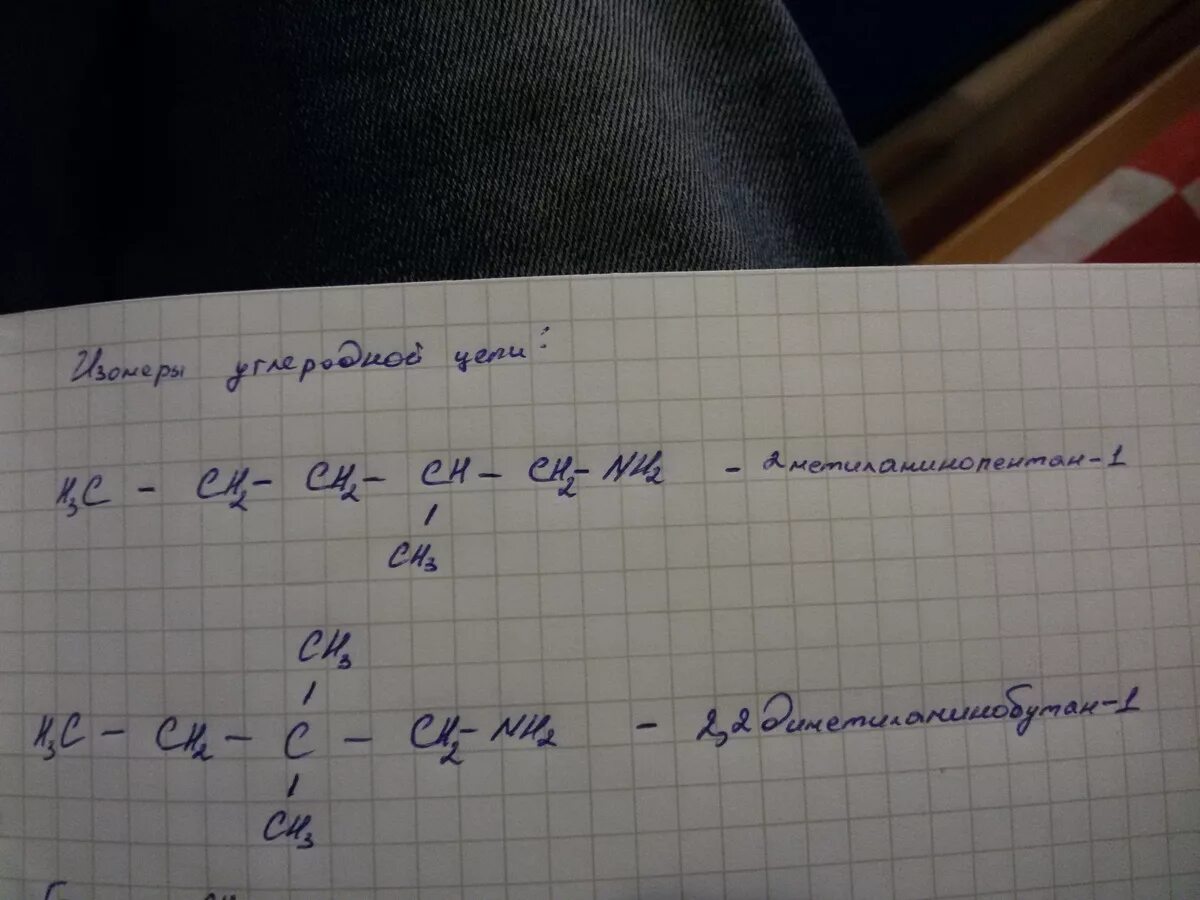 Изомеры углеродной цепи:
H₃C - CH₂- CH₂- CH - CH₂- NH₂ - 2метиламинопентан-1
CH₃
CH₃
H₃C - CH₂ - C - CH₂- NH₂ - 2,2диметиламинобутан-1
CH₃